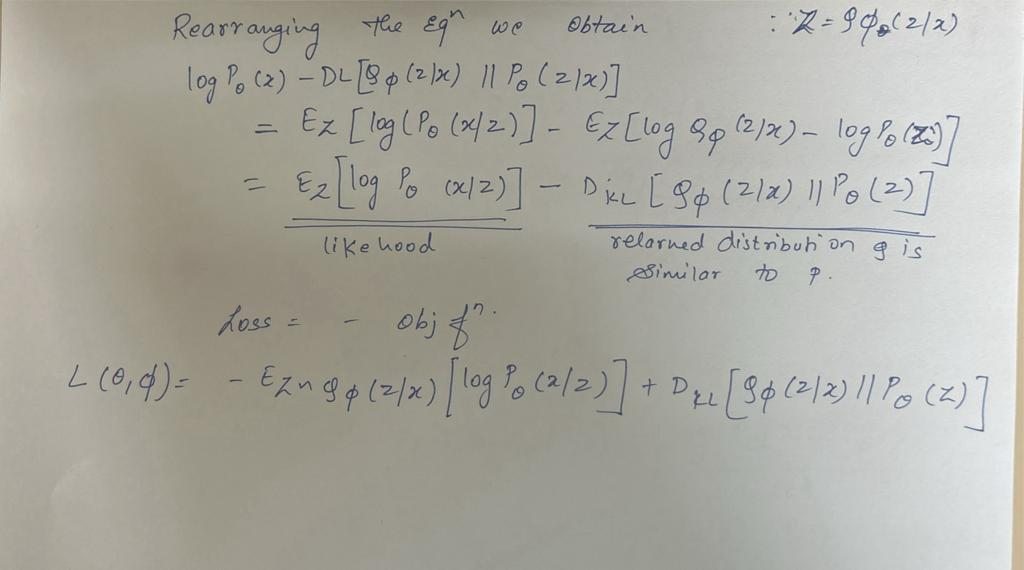 Rearranging the Eqⁿ we obtain ∵ Z = qφθ(z|x)
log Pθ(x) - DL[Qφ(z|x) || Pθ(z|x)]
= Ez[log(Pθ(x|z)] - Ez[log Qφ(z|x) - log Pθ(z)]
= Ez[log Pθ(x|z)] - DKL[qφ(z|x) || Pθ(z)]
likehood relarned distribution q is
similar to p.
Loss = - obj fⁿ.
L(θ,φ) = - Ez~qφ(z|x)[log Pθ(x|z)] + DKL[qφ(z|x) || Pθ(z)]